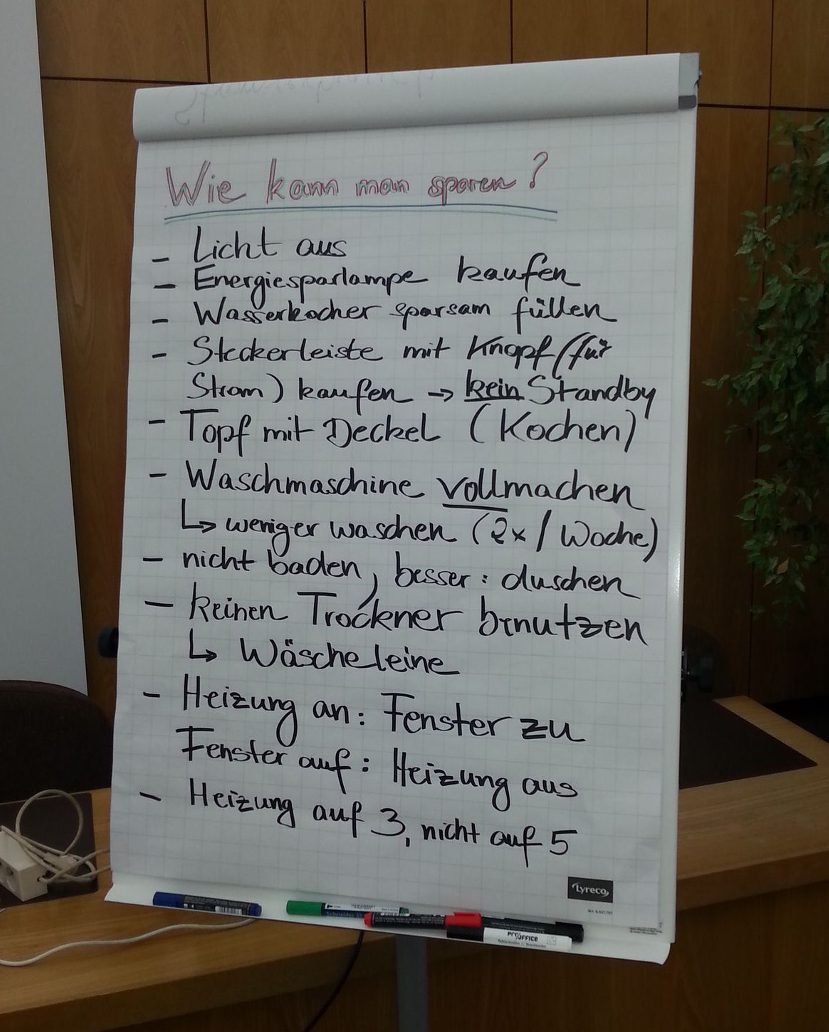 Wie kann man sparen?
- Licht aus
- Energiesparlampe kaufen
- Wasserkocher sparsam füllen
- Steckerleiste mit Knopf (für
Strom) kaufen → kein Standby
- Topf mit Deckel (Kochen)
- Waschmaschine vollmachen
↳ weniger waschen (2x / Woche)
- nicht baden, besser: duschen
- keinen Trockner benutzen
↳ Wäscheleine
- Heizung an: Fenster zu
Fenster auf: Heizung aus
- Heizung auf 3, nicht auf 5
Lyreco
OFFICE